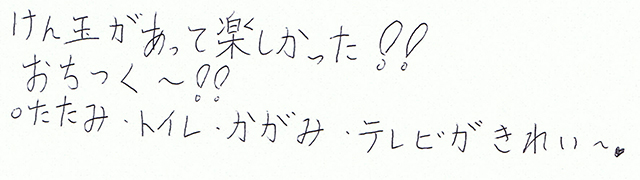 けん玉があって楽しかった!!
おちつく～!!
○たたみ・トイレ・かがみ・テレビがきれい～♥